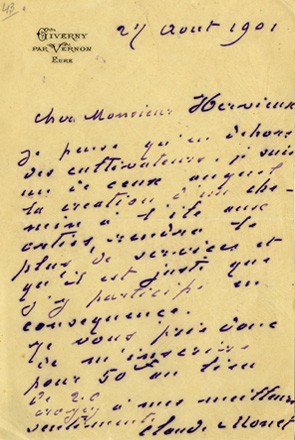 43.
GIVERNY
PAR VERNON
EURE
27 Aout 1901
Cher Monsieur Hervieux
Je pense qu'en dehors
des cultivateurs, je suis
un de ceux auquel
la création d'un che-
min à l'île aux
orties, rendra le
plus de services et
qu'il est juste que
j'y participe en
conséquence.
Je vous prie donc
de m'inscrire
pour 50 f au lieu
de 20
croyez à mes meilleurs
sentiments Claude Monet